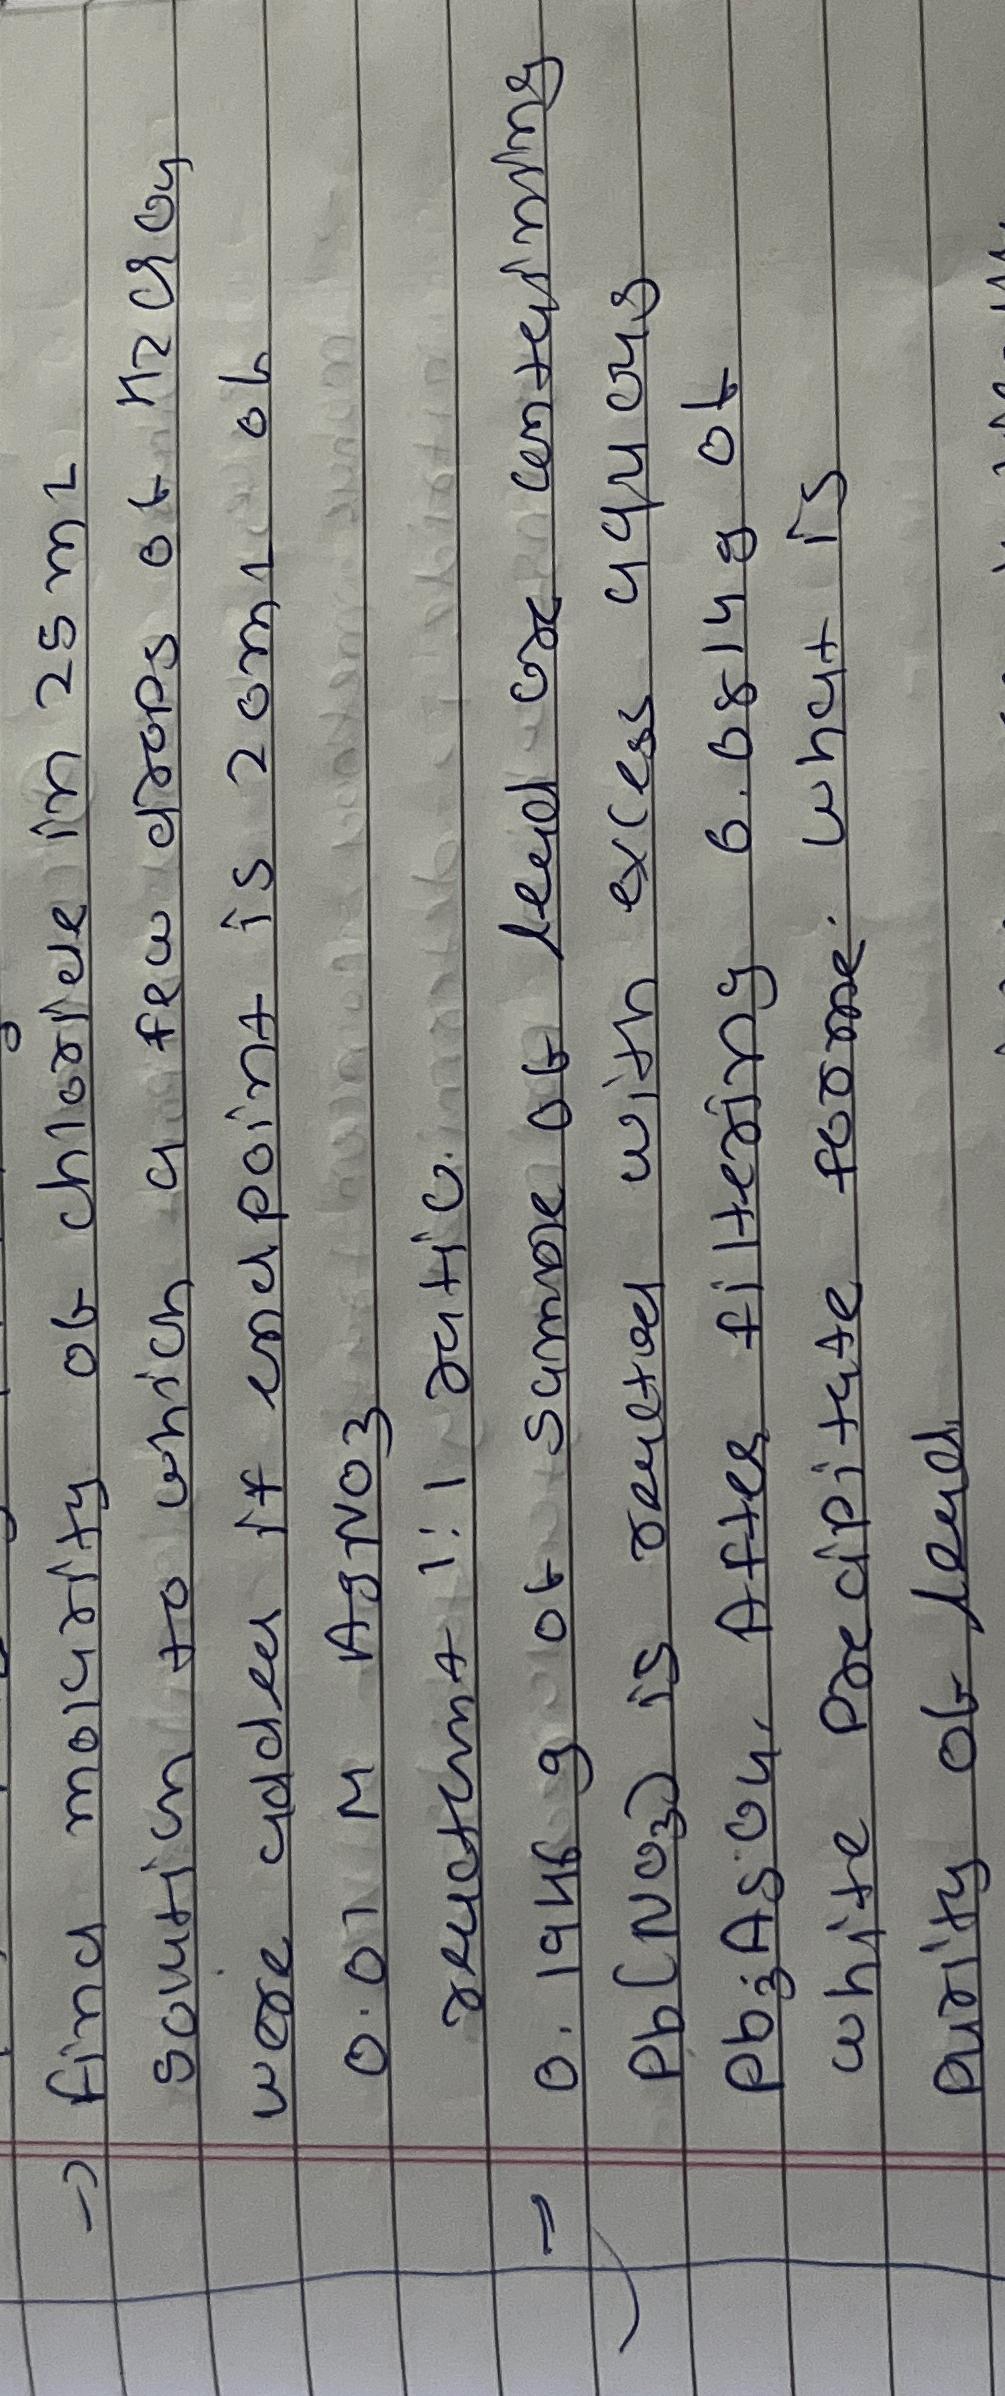 → find molarity of chloride in 25 mL
solution to which a few drops of K2CrO4
were added if end point is 20 mL of
0.01 M AgNO3
reactant 1:1 ratio.
→ 0.1946 g of sample of lead ore containing
Pb(NO3)2 is reacted with excess aqueous
Pb3AsO4. After filtering 0.0814 g of
white precipitate form. what is
purity of lead